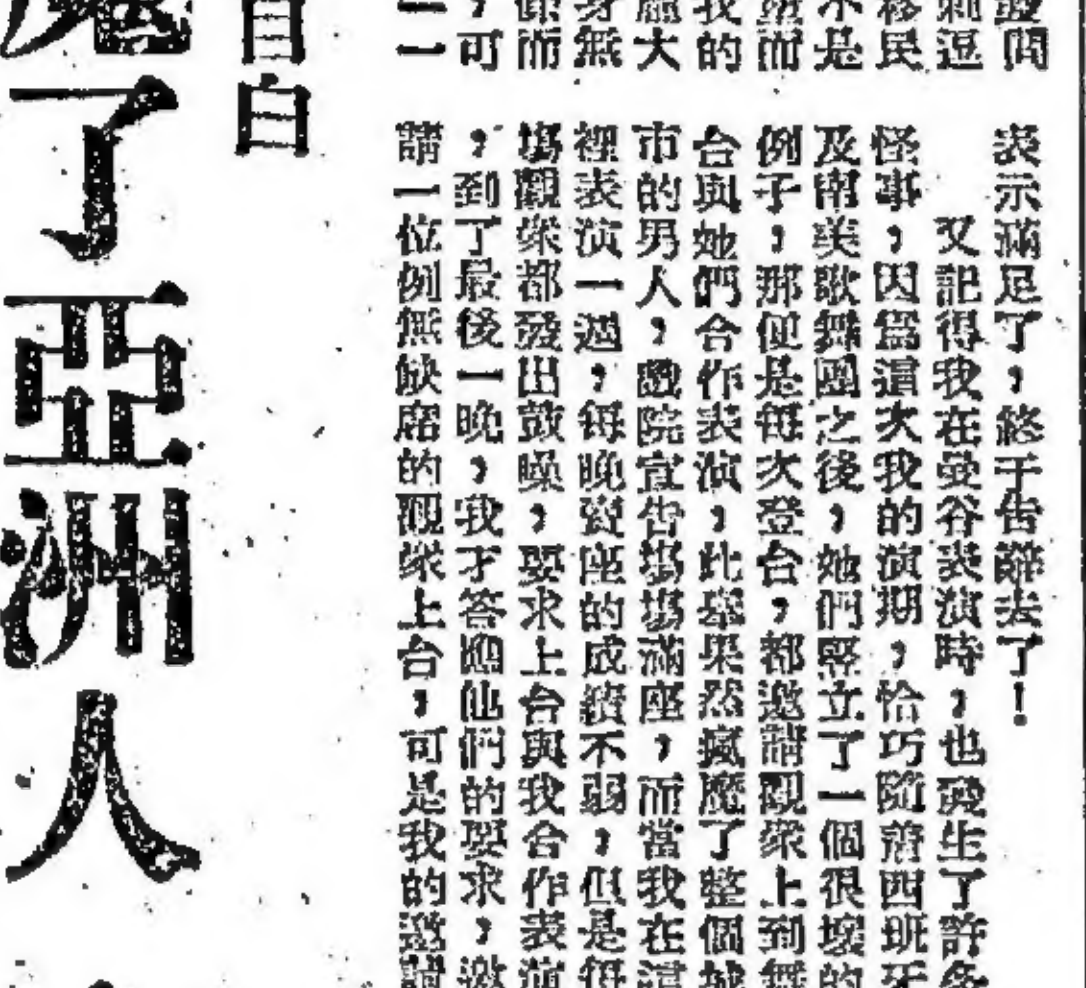 問
逗
移民
不是
而
我的
大
身無
你而
，可
一一
表示滿足了，終于告辭去了！
又記得我在曼谷表演時，也發生了許多
怪事，因為這次我的演期，恰巧隨著西班牙
及南美歌舞團之後，她們竪立了一個很壞的
例子，那便是每次登台，都邀請觀衆上到舞
台與她們合作表演，此舉果然瘋魔了整個城
市的男人，戲院宣告塲塲滿座，而當我在這
裡表演一過，每晚賣座的成績不弱，但是每
塲觀衆都發出鼓噪，要求上台與我合作表演
，到了最後一晚，我才答應他們的要求，邀
請一位例無缺席的觀衆上台，可是我的邀請
自白
魔了亞洲人